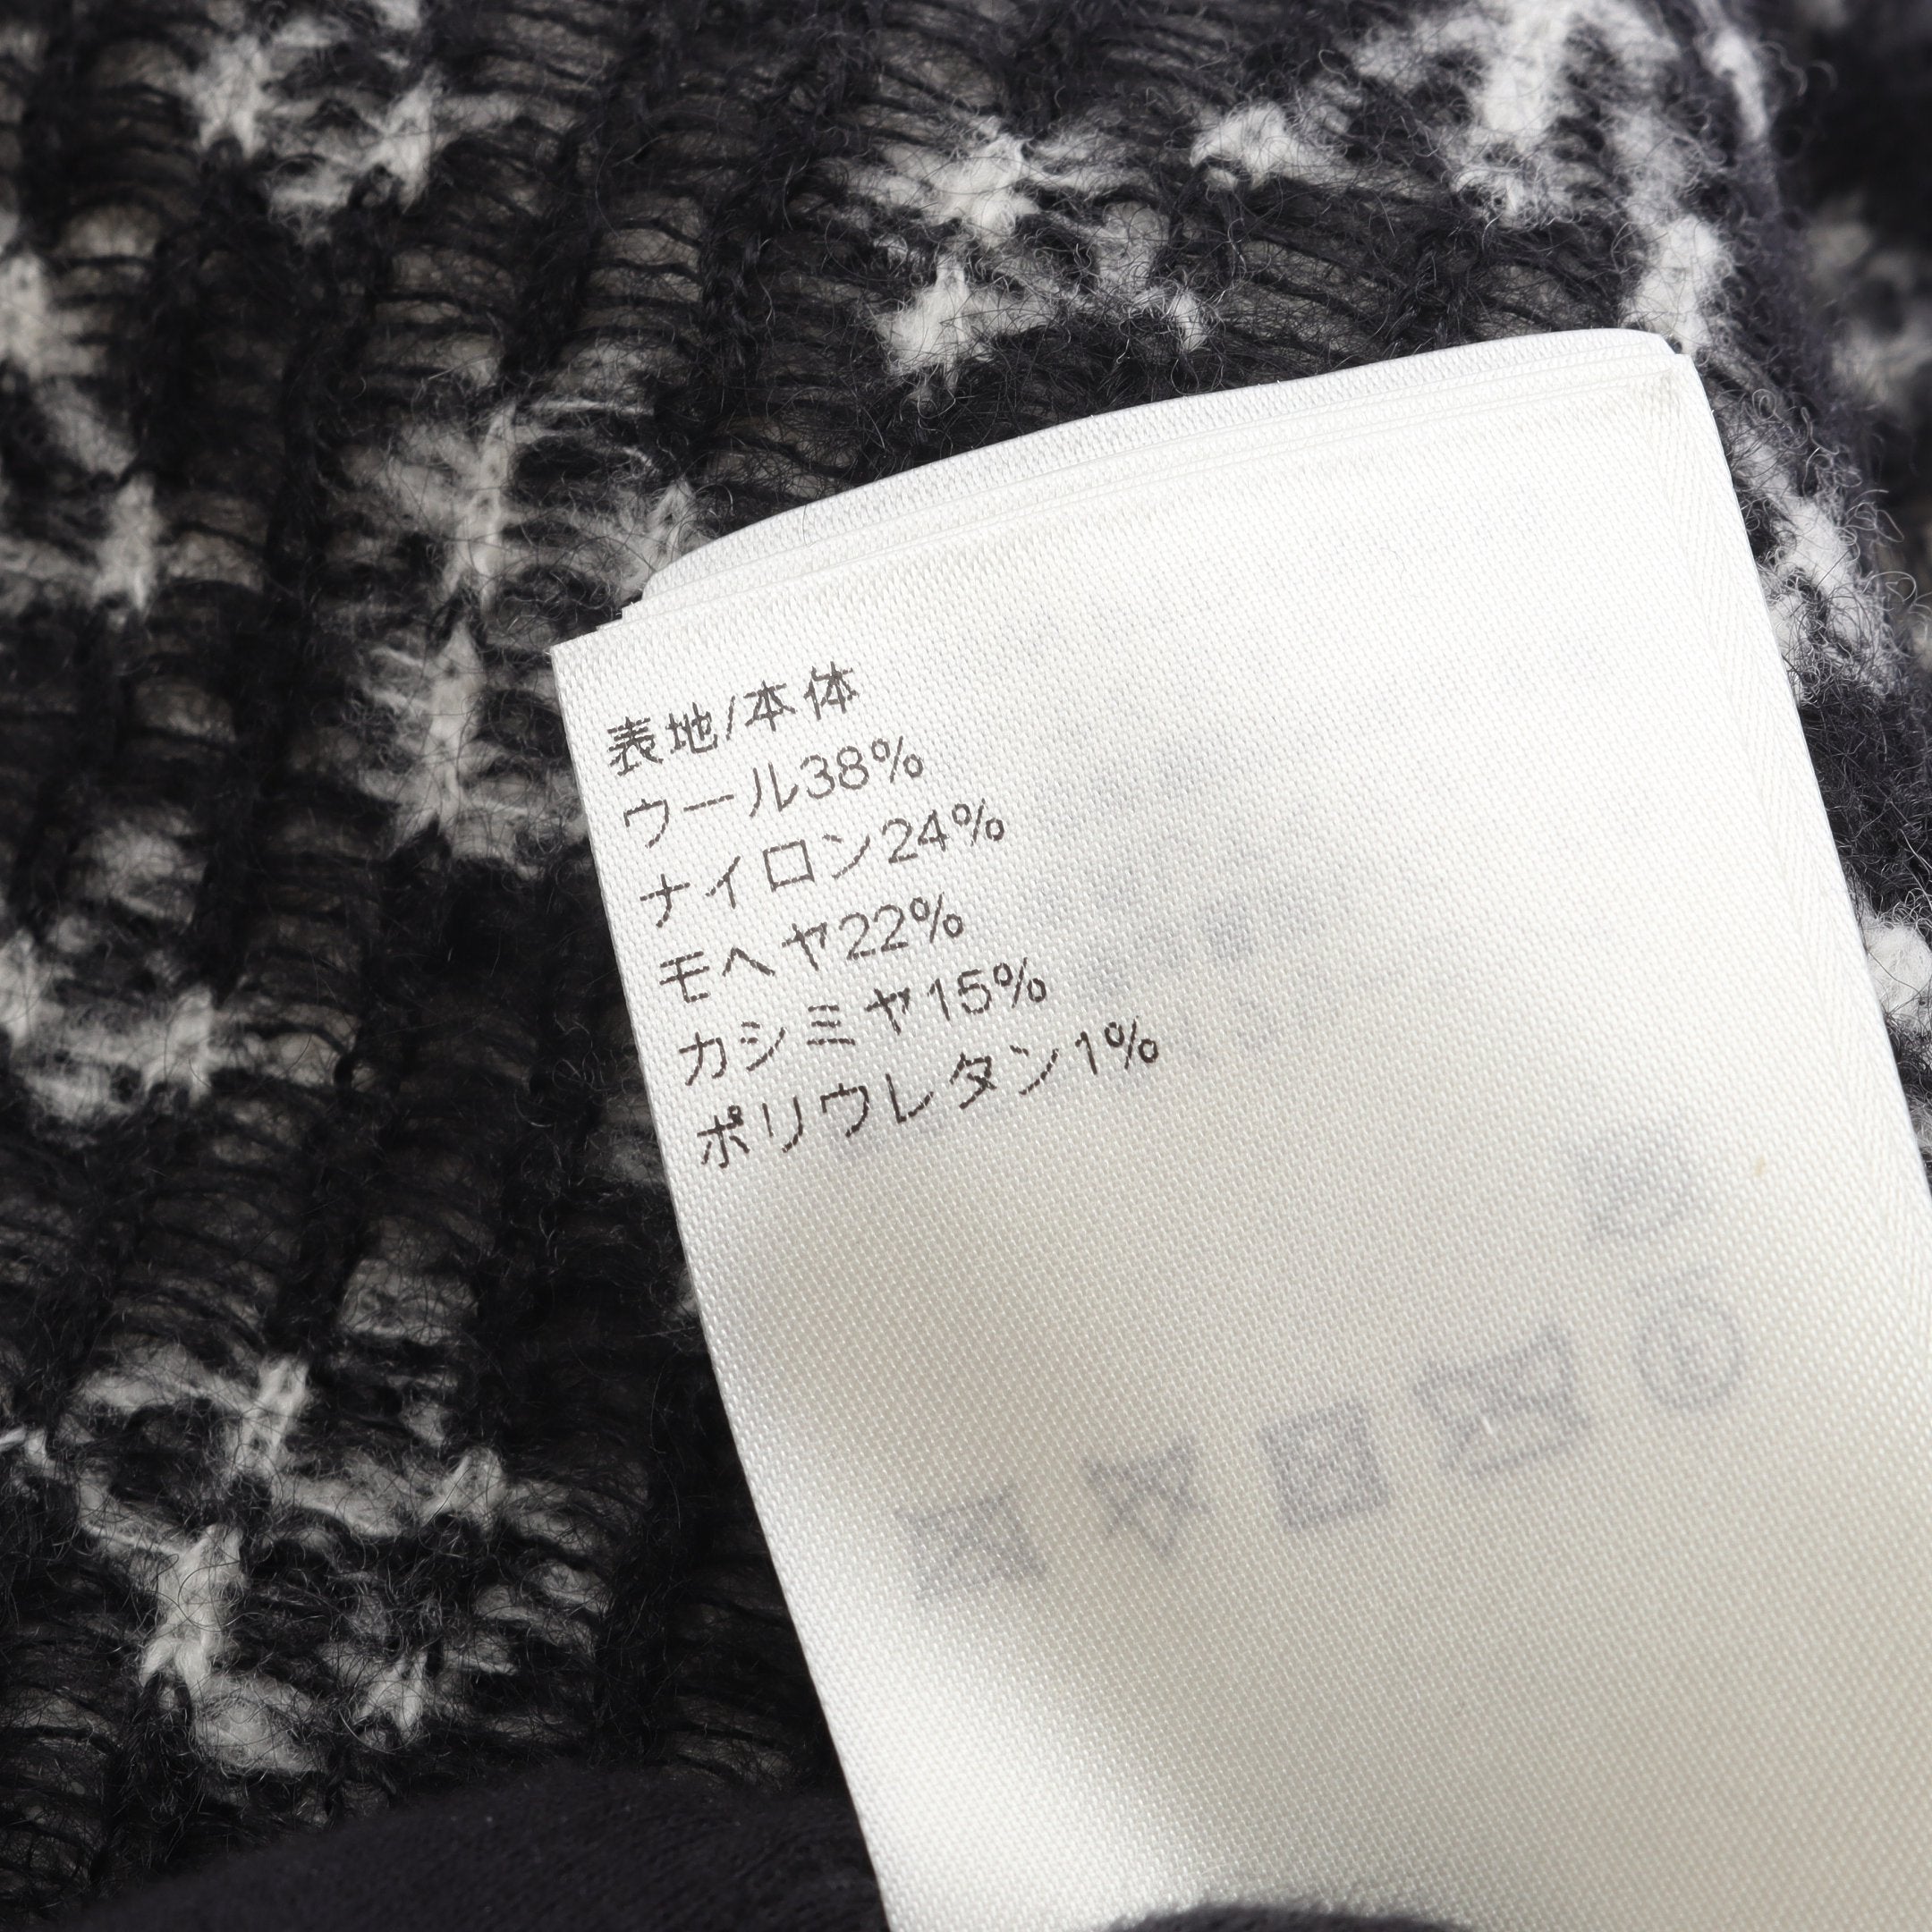 表地/本体
ウール38%
ナイロン24%
モヘヤ22%
カシミヤ15%
ポリウレタン1%